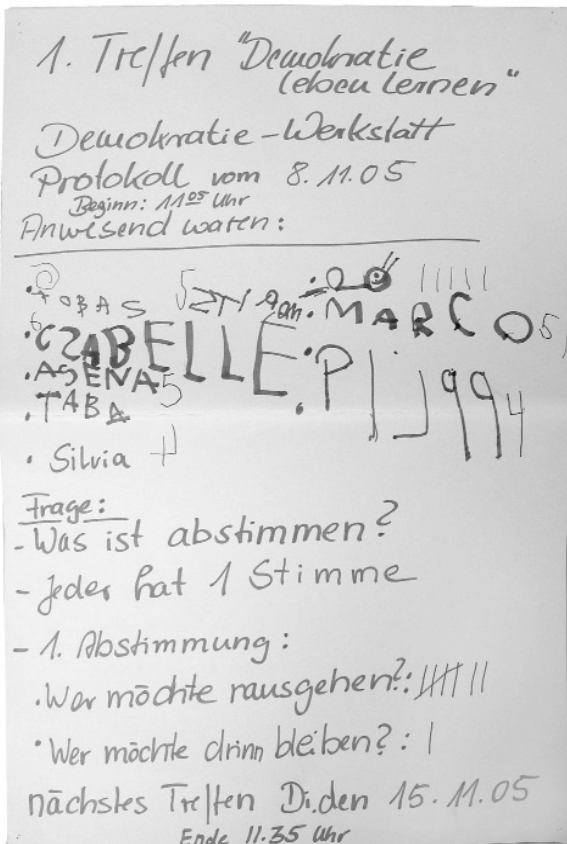 1. Treffen "Demokratie
leben lernen"
Demokratie-Werkstatt
Protokoll vom 8.11.05
Beginn: 11 05 Uhr
Anwesend waren:
TOBAS
• MARCO 5
• CZABELLE
• ASENA 5
• TABA
• Silvia
Frage:
- Was ist abstimmen?
- Jeder hat 1 Stimme
- 1. Abstimmung:
• Wer möchte rausgehen?: |||| ||
• Wer möchte drinn bleiben?: |
nächstes Treffen Di. den 15.11.05
Ende 11.35 Uhr